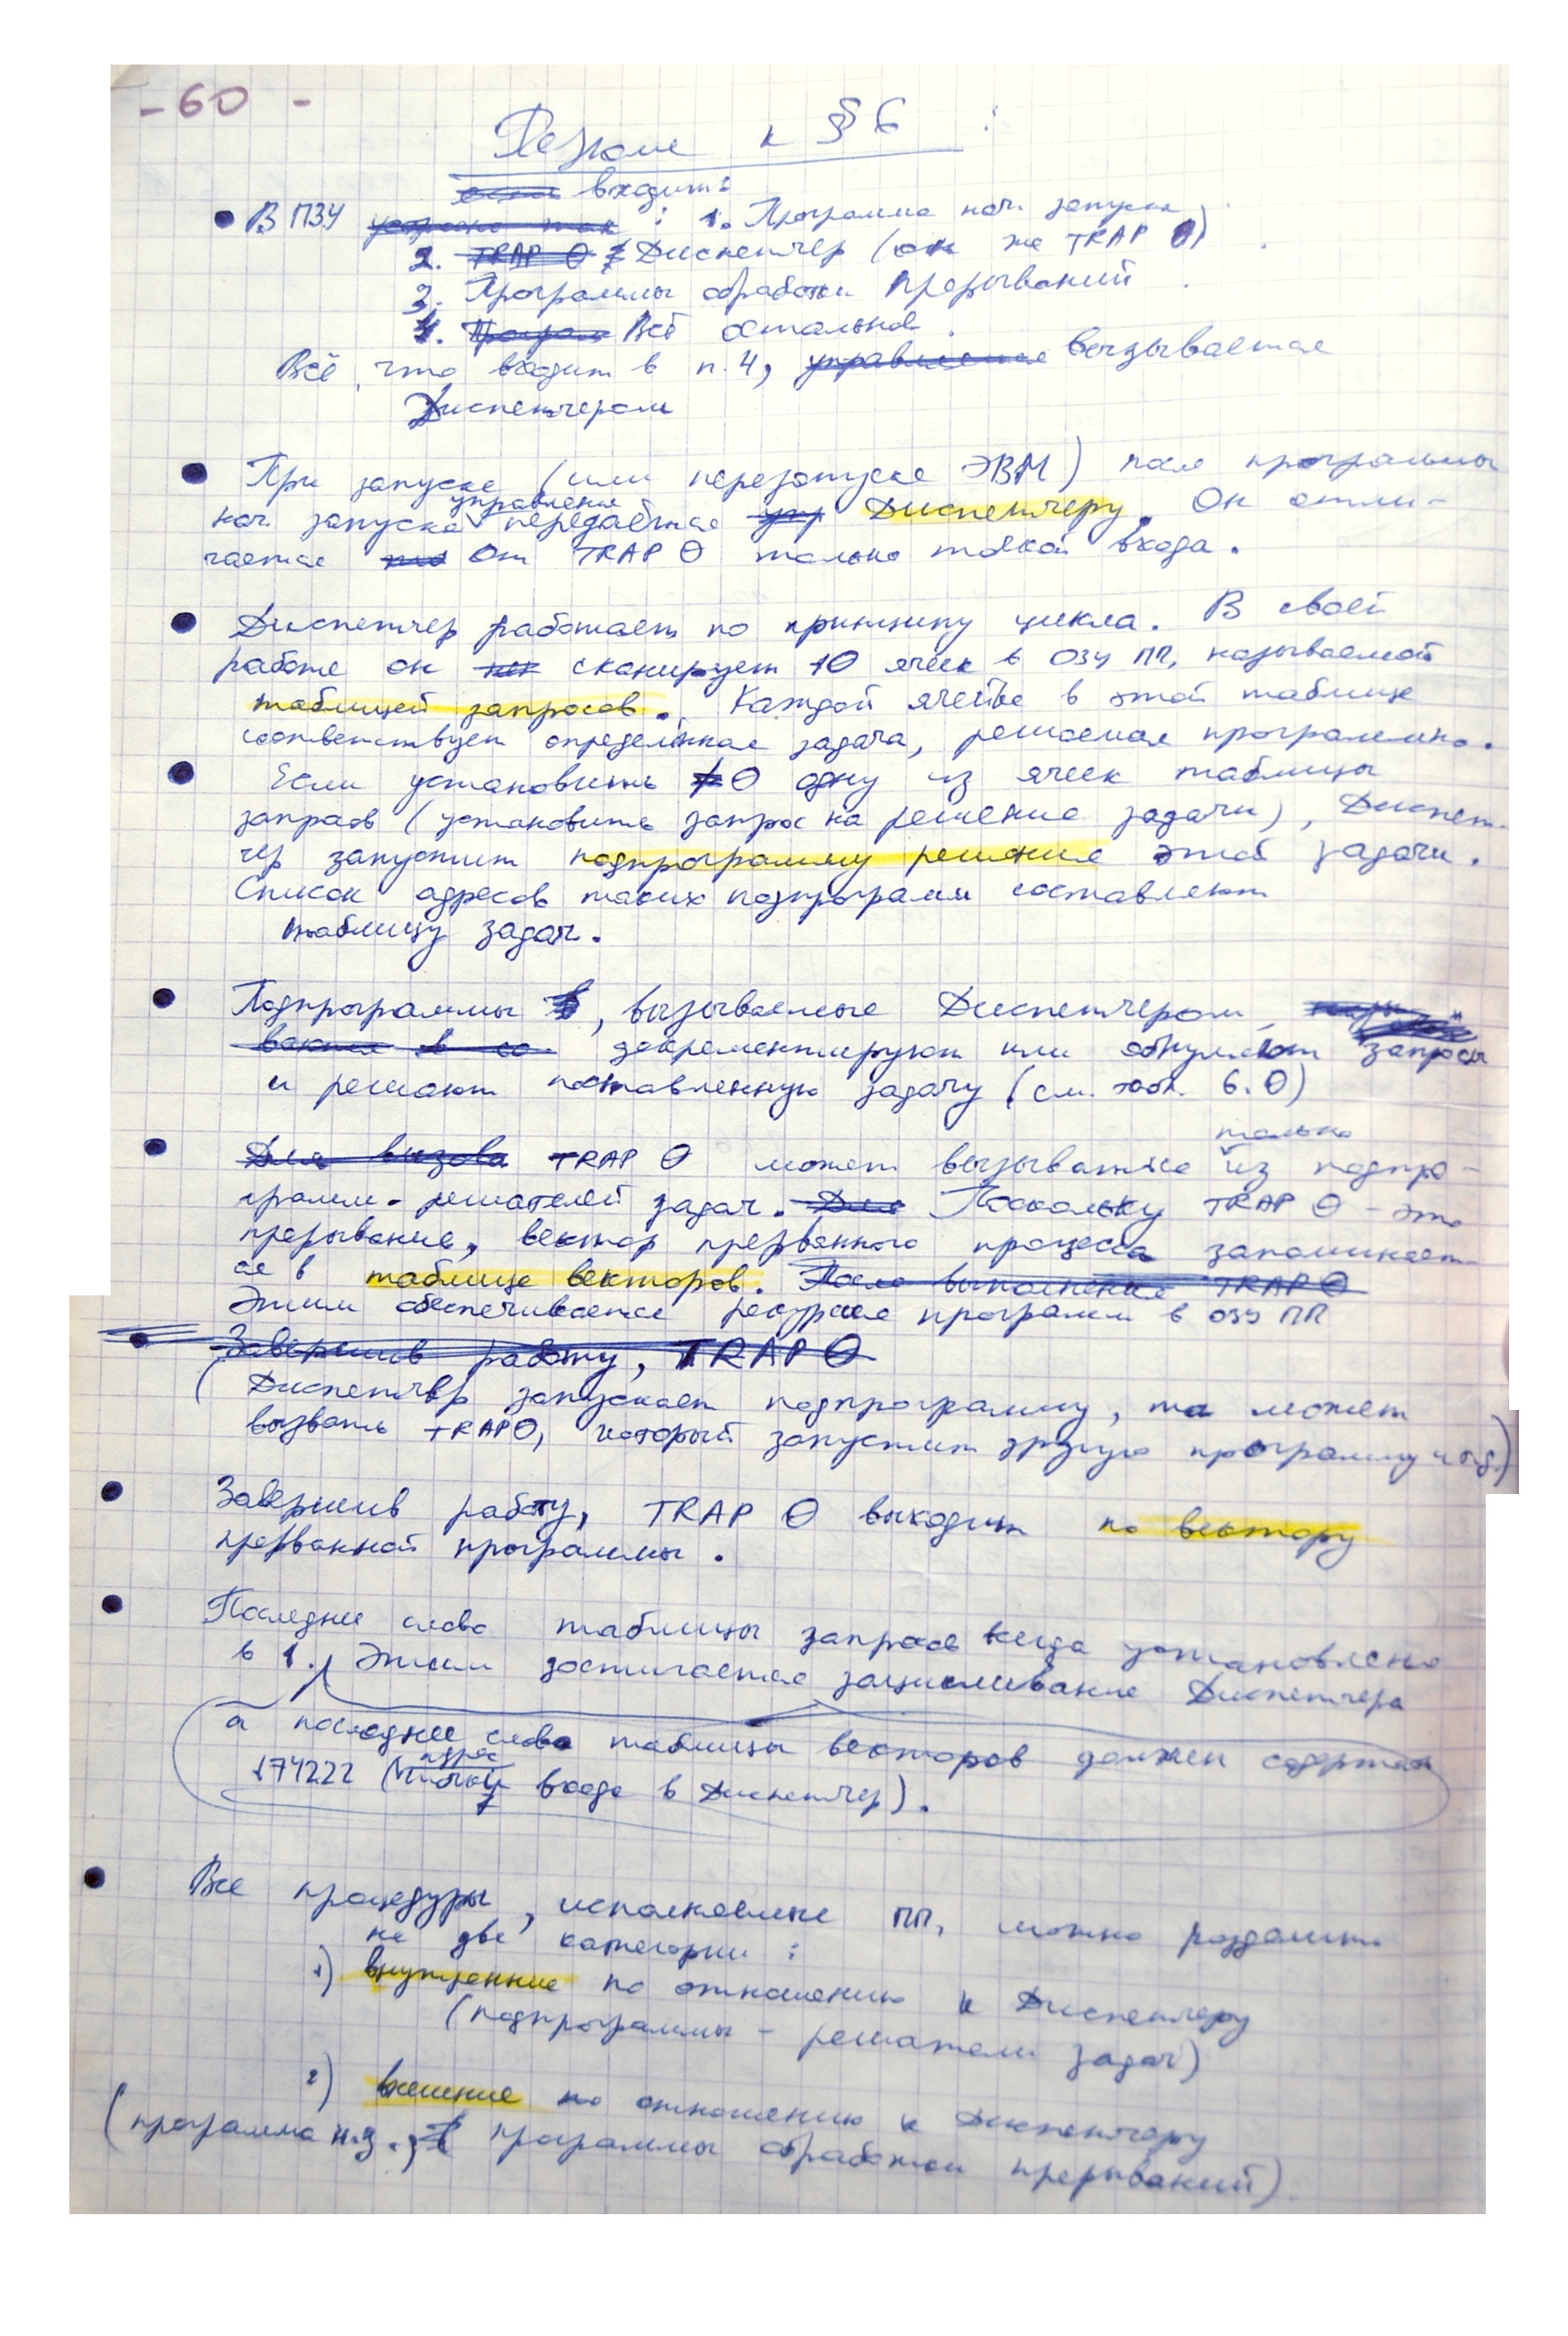 - 60 -
Резюме к § 6 :
входит:
• В ПЗУ : 1. Программа нач. запуска
2. Диспетчер (он же TRAP 0)
3. Программы обработки прерываний
4. Всё остальное.
Всё, что входит в п. 4, вызывается
Диспетчером
• При запуске (или перезапуске ЭВМ) после программы
управление
нач. запуска передаётся Диспетчеру. Он отли-
чается от TRAP 0 только точкой входа.
• Диспетчер работает по принципу цикла. В своей
работе он сканирует 10 ячеек в ОЗУ ПП, называемой
таблицей запросов. Каждой ячейке в этой таблице
соответствует определённая задача, решаемая программно.
• Если установить ≠0 одну из ячеек таблицы
запросов (установить запрос на решение задачи), Диспет-
чер запустит подпрограмму решения этой задачи.
Список адресов таких подпрограмм составляют
таблицу задач.
• Подпрограммы, вызываемые Диспетчером,
декрементируют или обнуляют запросы
и решают поставленную задачу (см. табл. 6.0)
только
• TRAP 0 может вызываться из подпро-
грамм-решателей задач. Поскольку TRAP 0 - это
прерывание, вектор прерванного процесса запоминает-
ся в таблице векторов. После выполнения TRAP 0
Этим обеспечивается рекурсия программ в ОЗУ ПП
• Завершив работу, TRAP 0
(Диспетчер запускает подпрограмму, та может
вызвать TRAP0, который запустит другую программу и т.д.)
• Завершив работу, TRAP 0 выходит по вектору
прерванной программы.
• Последнее слово таблицы запросов всегда установлено
в 1. Этим достигается зацикливание Диспетчера
а последнее слово таблицы векторов должен содержать
адрес
174222 (точку входа в Диспетчер).
• Все процедуры, исполняемые ПП, можно разделить
на две категории :
1) внутренние по отношению к Диспетчеру
(подпрограммы - решатели задач)
2) внешние по отношению к Диспетчеру
(программа н.з., программы обработки прерываний)